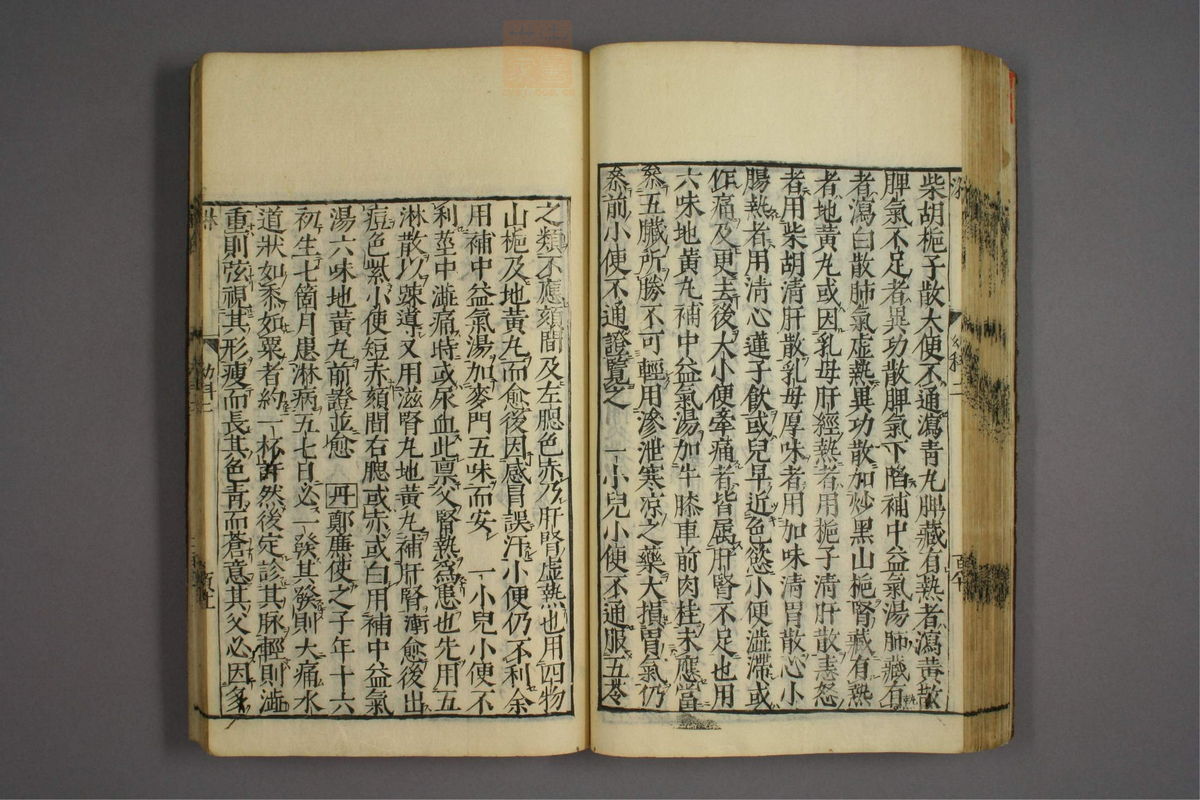 柴胡梔子散大便不通瀉青丸脾藏有熱者瀉黃散
脾氣不足者異功散脾氣下陷補中益氣湯肺藏有
者瀉白散肺氣虛熱異功散加炒黑山梔腎藏有熱
者地黃丸或因乳母肝經熱者用梔子清肝散恚怒
者用柴胡清肝散乳母厚味者用加味清胃散心小
腸熱者用清心蓮子飲或兒早近色慾小便澁滯或
作痛及更去後大小便牽痛者皆属肝腎不足也用
六味地黃丸補中益氣湯加牛膝車前肉桂未應當
叅五臟所勝不可輕用滲泄寒凉之藥大損胃氣仍
叅前小便不通證覽之 一小兒小便不通服五苓
之類不應頦間及左腮色赤乃肝腎虛熱也用四物
山梔及地黃丸而愈後因感冒誤汗小便仍不利余
用補中益氣湯加麥門五味而安 一小兒小便不
利莖中澁痛時或尿血此禀父腎熱爲患也先用五
淋散以疎導又用滋腎丸地黃丸補肝腎漸愈後出
痘色紫小便短赤頦間右腮或赤或白用補中益氣
湯六味地黃丸前證並愈 丹鄭廉使之子年十六
初生七箇月患淋病五七日必一發其發則大痛水
道狀如黍如粟者約一杯許然後定診其脉輕則澁
重則弦視其形瘦而長其色青而蒼意其父必因多